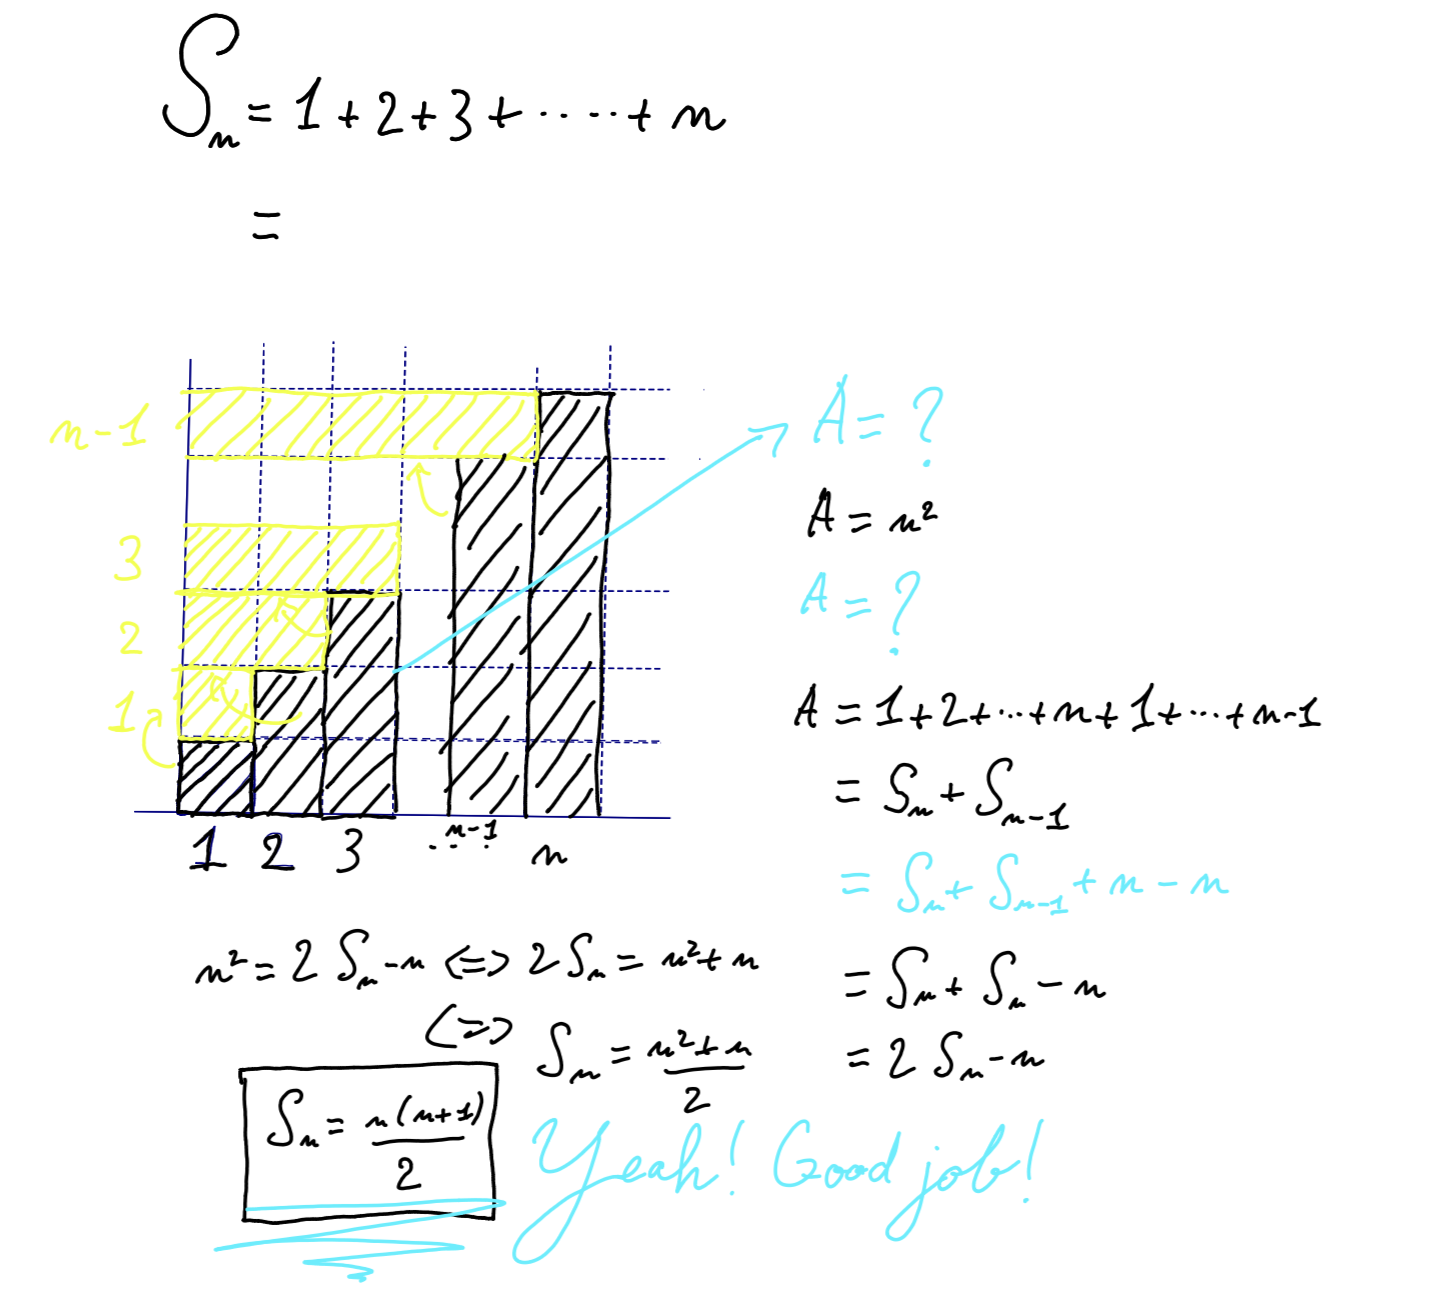 Sn = 1 + 2 + 3 + ····· + n
=
n-1
3
2
1
1 2 3 ··· n-1 n
A = ?
A = n²
A = ?
A = 1+2+···+n+1+···+n-1
= Sn + Sn-1
= Sn + Sn-1 + n - n
= Sn + Sn - n
= 2 Sn - n
n² = 2 Sn - n <=> 2 Sn = n² + n
<=> Sn = n²+n / 2
Sn = n(n+1) / 2
Yeah! Good job!